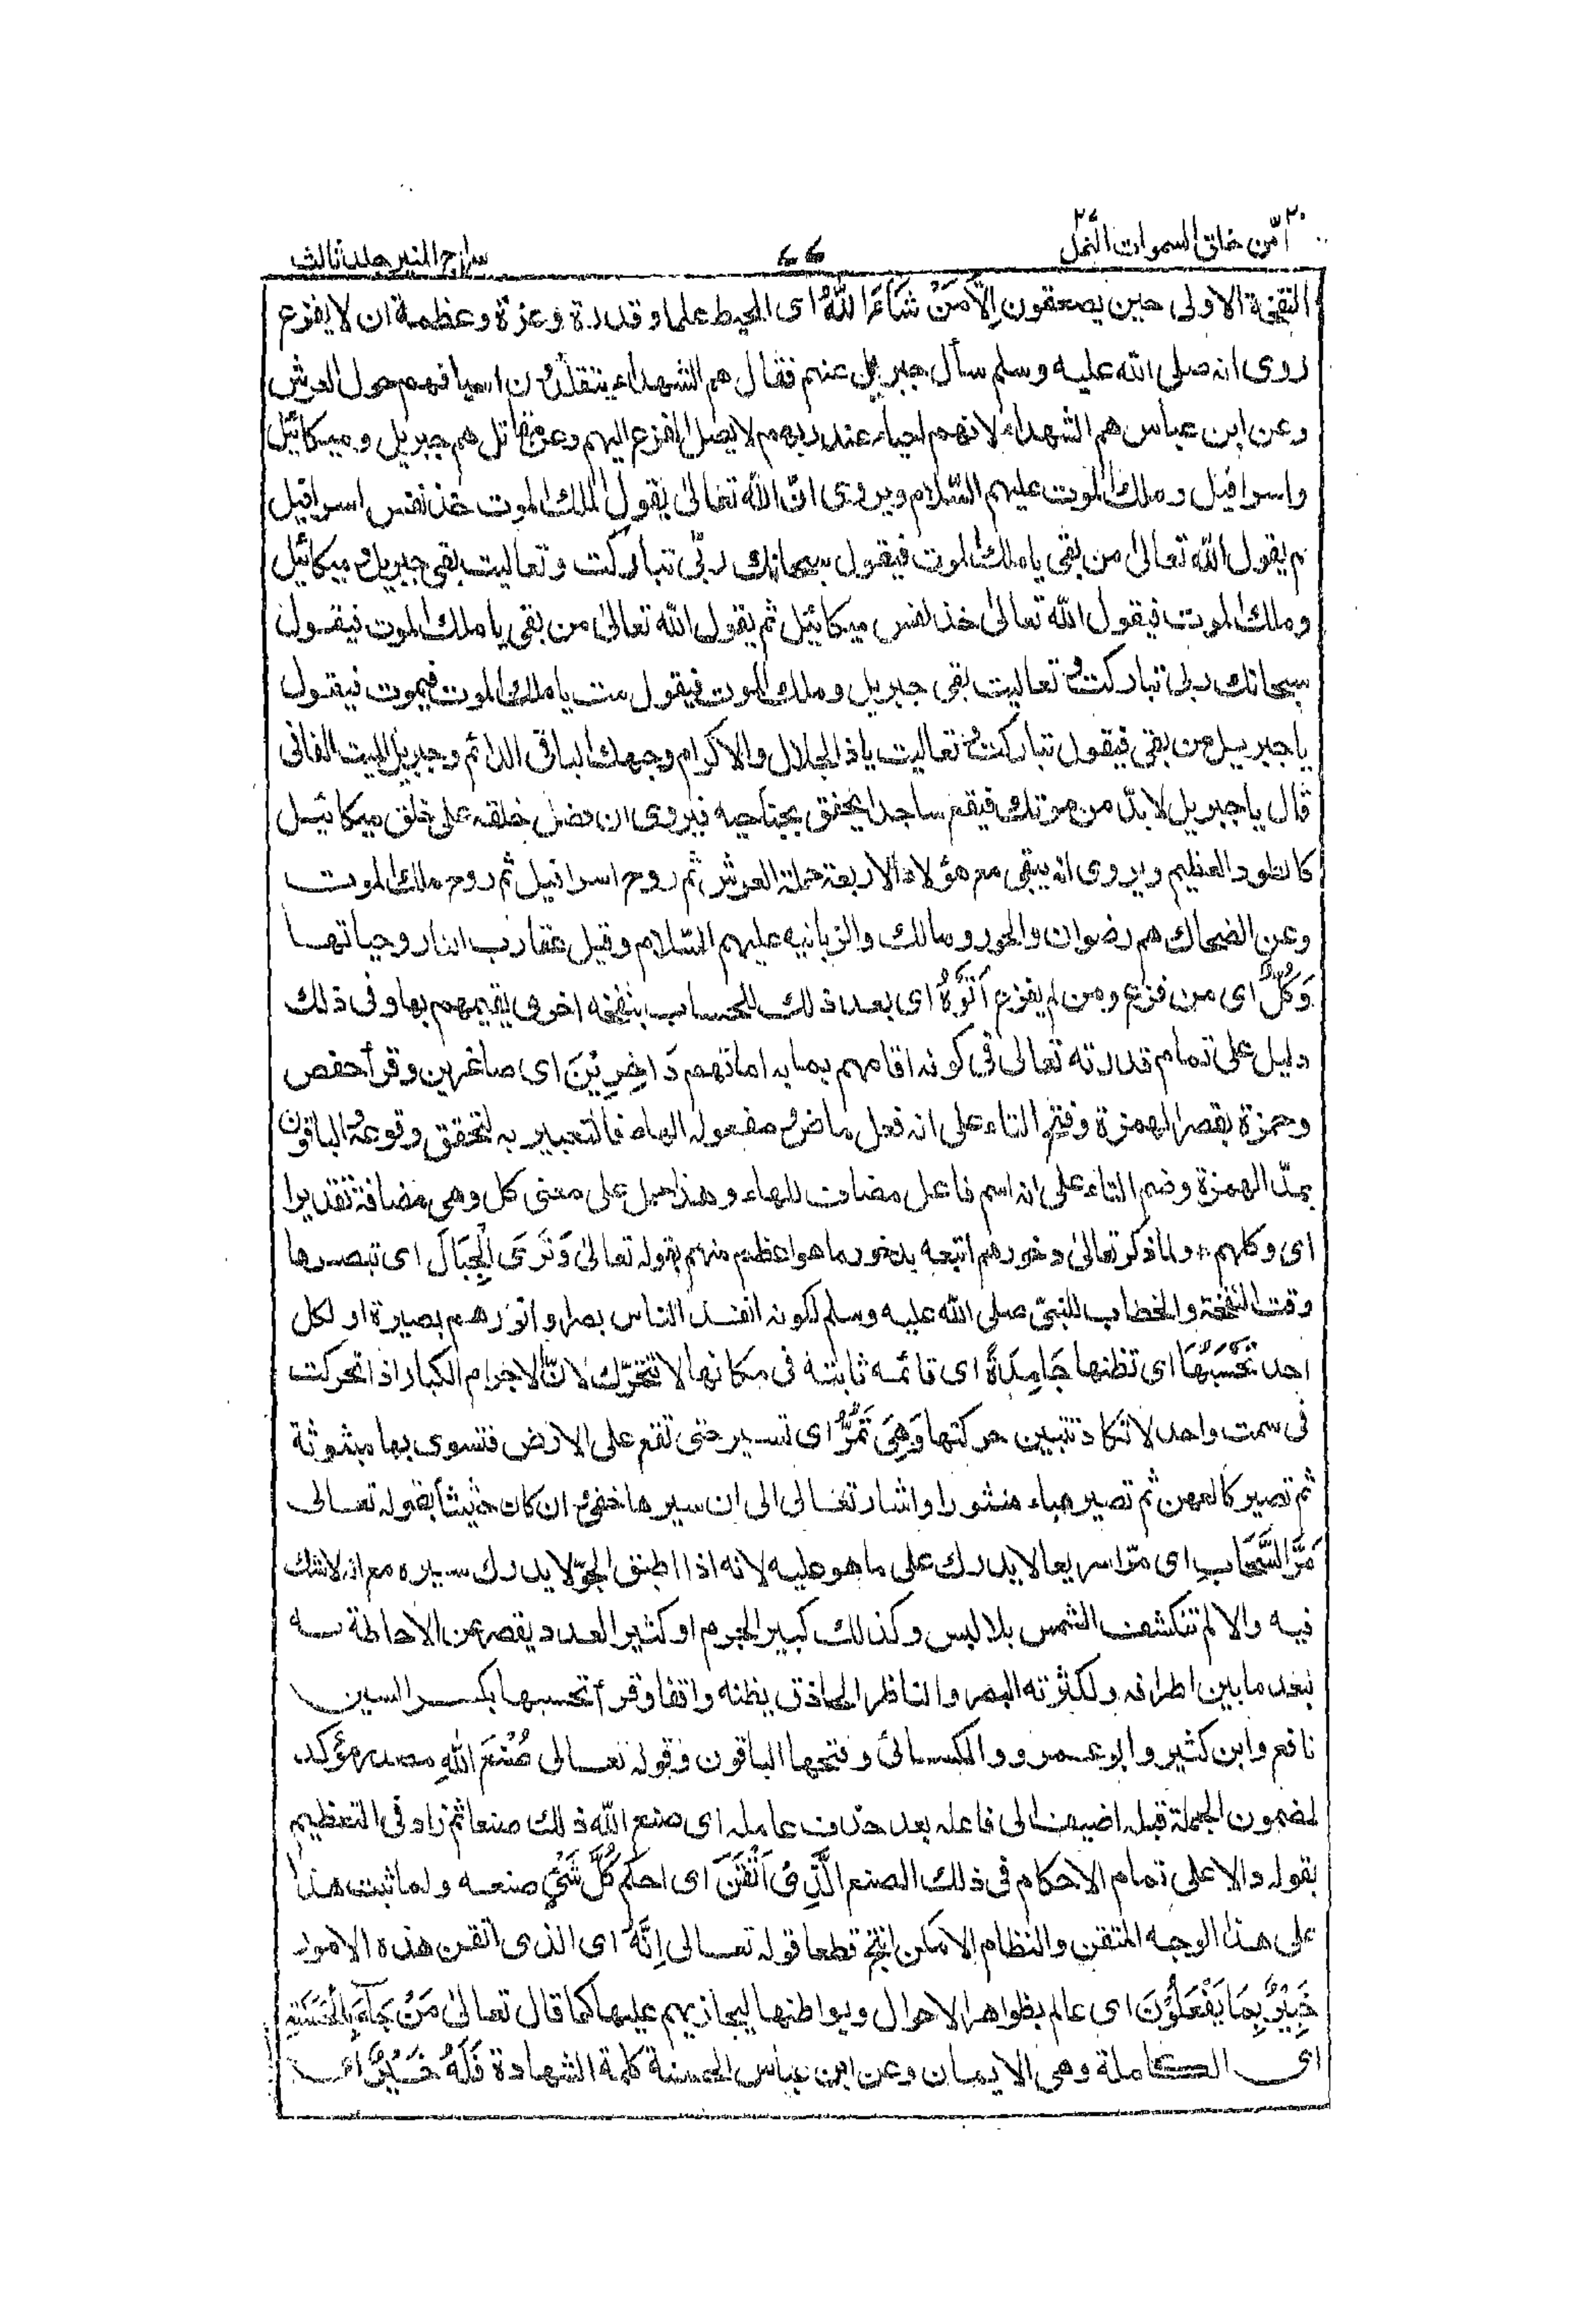 ٢٠ امّن خلق السموات النمل ٢٧
٧٦
سراج المنير جلد ثالث
النفخة الاولى حين يصعقون اِلَّا مَنْ شَآءَ اللّٰهُ اى المحيط علما وقدرة وعزة وعظمة ان لا يفزع
روى انه صلى الله عليه وسلم سأل جبريل عنهم فقال هم الشهداء يتقلدون اسيافهم حول العرش
وعن ابن عباس هم الشهداء لانهم احياء عند ربهم لا يصل الفزع اليهم وعن مقاتل هم جبريل وميكائيل
واسرافيل وملك الموت عليهم السّلام ويروى انّ الله تعالىٰ يقول لملك الموت خذ نفس اسرافيل
ثم يقول الله تعالىٰ من بقى يا ملك الموت فيقول سبحانك ربّى تباركت وتعاليت بقى جبريل وميكائيل
وملك الموت فيقول الله تعالىٰ خذ نفس ميكائيل ثم يقول الله تعالىٰ من بقى يا ملك الموت فيقول
سبحانك ربى تباركت وتعاليت بقى جبريل وملك الموت فيقول مت يا ملك الموت فيموت فيقول
يا جبريل من بقى فيقول تباركت وتعاليت يا ذا الجلال والاكرام وجهك الباقى الدائم وجبريل الميت الفانى
قال يا جبريل لا بدّ من موتك فيقع ساجدا يخفق بجناحيه فيروى ان فضل خلقه على خلق ميكائيل
كالطود العظيم ويروى انه يبقى مع هؤلاء الاربعة حملة العرش ثم روح اسرافيل ثم روح ملك الموت
وعن الضحاك هم رضوان والحور ومالك والزبانيه عليهم السّلام وقيل عقارب النار وحياتها
وَكُلٌّ اى من فزع ومن لم يفزع اَتَوْهُ اى بعد ذلك للحساب بنفخه اخرى يقيمهم بها وفى ذلك
دليل على تمام قدرته تعالىٰ فى كونه اقامهم بما به اماتهم دَاخِرِيْنَ اى صاغرين وقرأ حفص
وحمزة بقصر الهمزة وفتح التاء على انه فعل ماض ومفعوله الهاء فالتعبير به لتحقق وقوعه والباقون
بمدّ الهمزة وضم التاء على انه اسم فاعل مضاف للهاء وهذا حمل على معنى كل وهى مضافة تقديرا
اى وكلهم ٭ ولما ذكر تعالىٰ دخورهم اتبعه بدخور ما هو اعظم منهم بقوله تعالىٰ وَتَرَى الْجِبَالَ اى تبصرها
وقت النفخة والخطاب للنبىّ صلى الله عليه وسلم لكونه انفذ الناس بصرا وانورهم بصيرة او لكل
احد تَحْسَبُهَا اى تظنها جَامِدَةً اى قائمه ثابتة فى مكانها لا تتحرّك لانّ الاجرام الكبار اذا تحركت
فى سمت واحد لا تكاد تتبين حركتها وَهِىَ تَمُرُّ اى تسير حتى تقع على الارض فتسوى بها مبثوثة
ثم تصير كالعهن ثم تصير هباء منثورا واشار تعالى الى ان سيرها خفى وان كان حثيثا بقوله تعالى
مَرَّ السَّحَابِ اى مرّا سريعا لا يدرك على ما هو عليه لانه اذا اطبق الجوّ لا يدرك سيره مع انه لاشك
فيه والا لم تنكشف الشمس بلا لبس وكذلك كبير الجرم او كثير العدد يقصر عن الاحاطة به
لبعد ما بين اطرافه ولكثرته البصر والناظر الحاذق يظنه واقفا وقرأ تحسبها بكسر السين
نافع وابن كثير وابو عمرو والكسائى وفتحها الباقون وقوله تعالى صُنْعَ اللهِ مصدر مؤكد
لمضمون الجملة قبله اضيف الى فاعله بعد حذف عامله اى صنع اللّه ذلك صنعا ثم زاد فى التعظيم
بقوله دالا على تمام الاحكام فى ذلك الصنع الَّذِىْ اَتْقَنَ اى احكم كُلَّ شَىْءٍ صنعه ولما ثبت هذا
على هذا الوجه المتقن والنظام الامكن انتج قطعا قوله تعالى اِنَّهٗ اى الذى اتقن هذه الامور
خَبِيْرٌ بِمَا يَفْعَلُوْنَ اى عالم بظواهر الاحوال وبواطنها ليجازيهم عليها كما قال تعالىٰ مَنْ جَآءَ بِالْحَسَنَةِ
اى الكاملة وهى الايمان وعن ابن عباس الحسنة كلمة الشهادة فَلَهٗ خَيْرٌ اى